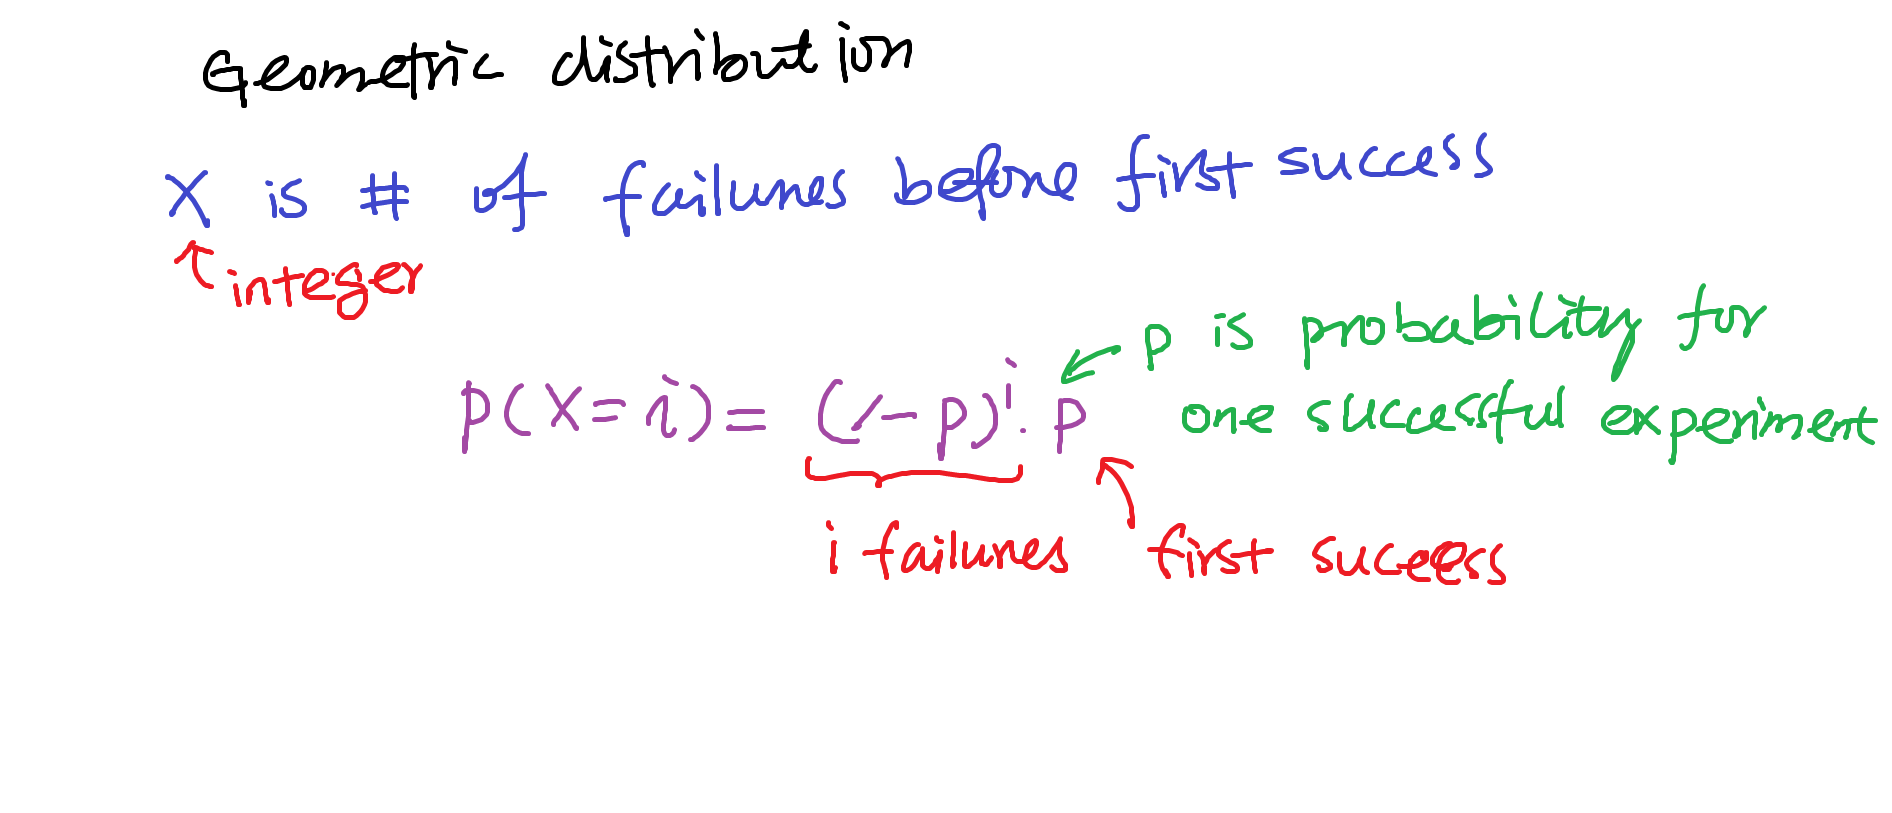 Geometric distribution
X is # of failures before first success
integer
p is probability for
P(X=i) = (1-p)^i · p
one successful experiment
i failures
first success